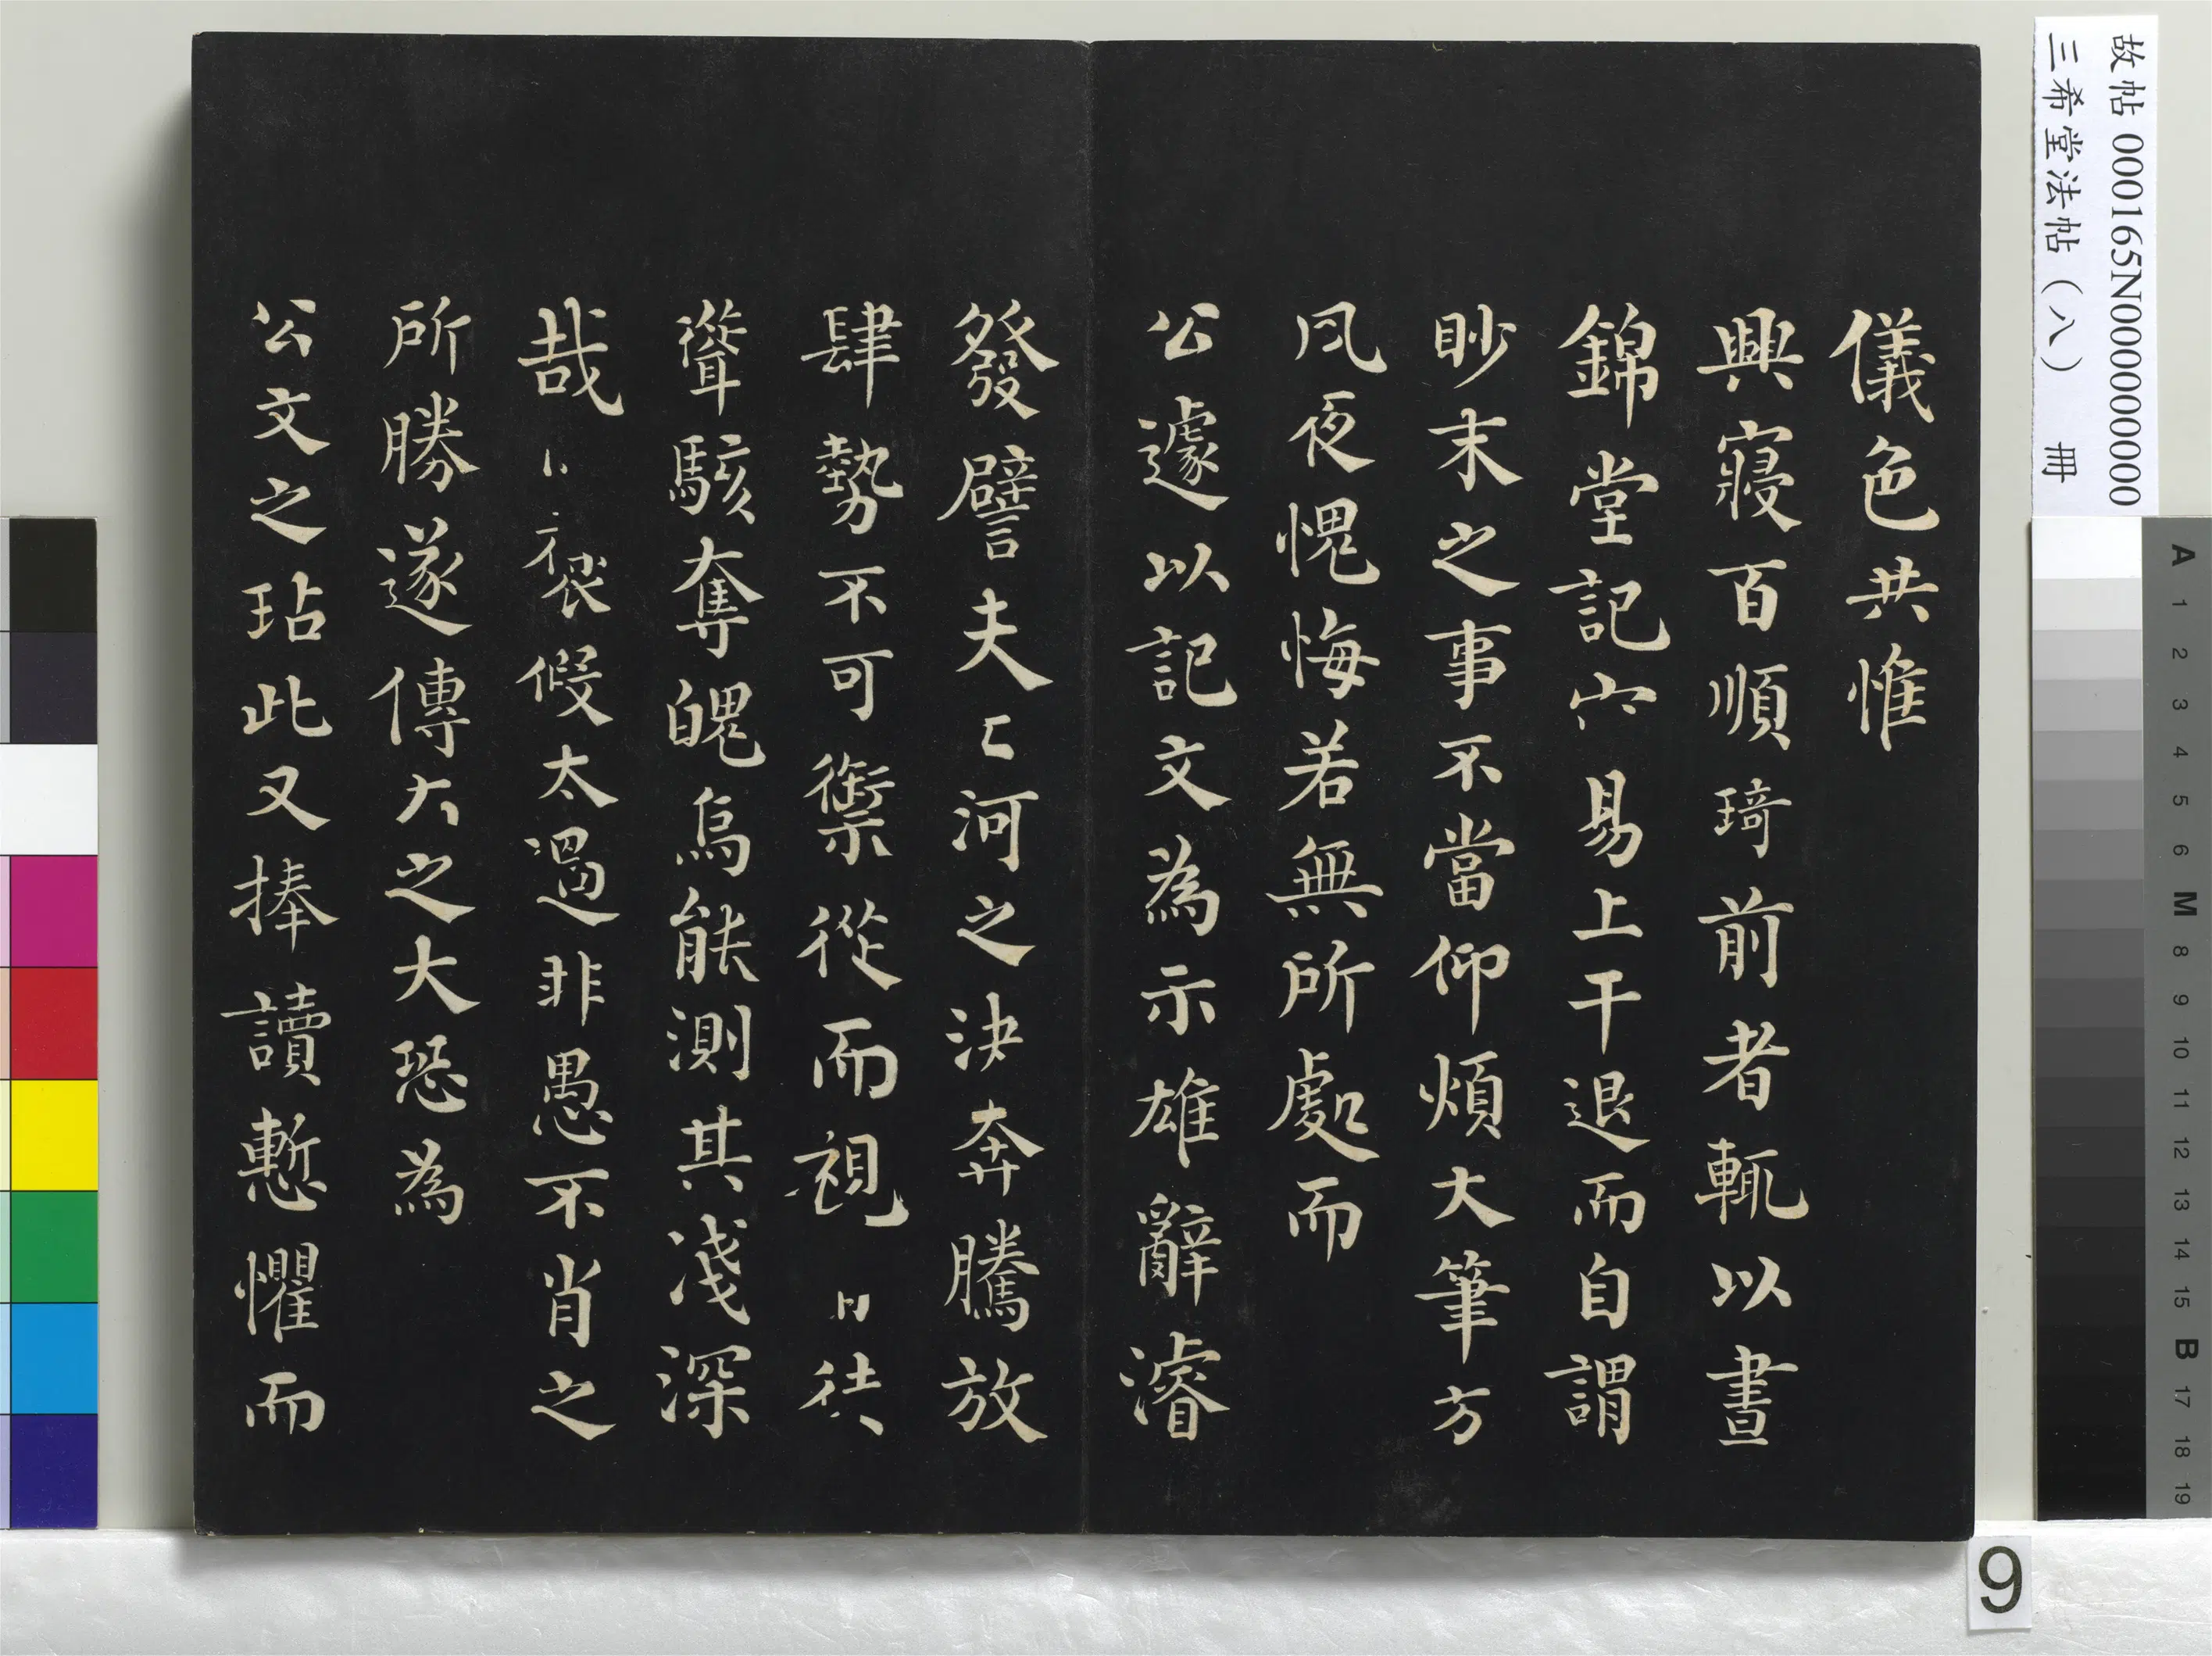 故帖 000165N000000000
三希堂法帖（八） 冊
儀色共惟
興寢百順琦前者輒以晝
錦堂記易上干退而自謂
眇末之事不當仰煩大筆方
夙夜愧悔若無所處而
公遽以記文為示雄辭濬
發譬夫河之決奔騰放
肆勢不可禦從而視徒
聳駭奪魄烏能測其淺深
哉褒假太過非愚不肖之
所勝遂傳之大恐為
公文之玷此又捧讀慙懼而
A 1 2 3 4 5 6 M 8 9 10 11 12 13 14 15 B 17 18 19
9